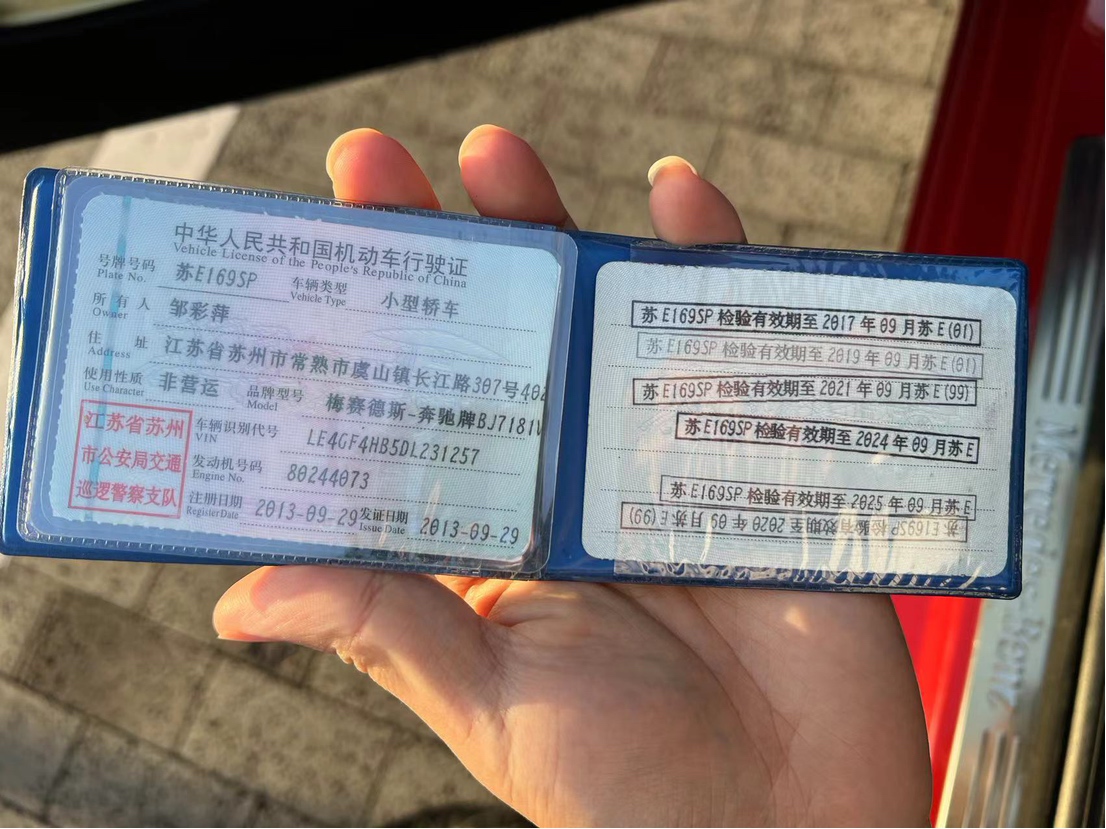 中华人民共和国机动车行驶证
Vehicle License of the People's Republic of China
号牌号码 苏E169SP 车辆类型 小型轿车
Plate No. Vehicle Type
所有人 邹彩萍
Owner
住址 江苏省苏州市常熟市虞山镇长江路307号402
Address
使用性质 非营运 品牌型号 梅赛德斯-奔驰牌BJ7181V
Use Character Model
江苏省苏州
市公安局交通
巡逻警察支队
车辆识别代号 LE4GF4HB5DL231257
VIN
发动机号码 80244073
Engine No.
注册日期 2013-09-29 发证日期 2013-09-29
Register Date Issue Date
苏E169SP 检验有效期至 2017 年 09 月苏 E(01)
苏E169SP 检验有效期至 2019 年 09 月苏 E(01)
苏E169SP 检验有效期至 2021 年 09 月苏 E(99)
苏E169SP 检验有效期至 2024 年 09 月苏 E
苏E169SP 检验有效期至 2025 年 09 月苏 E
苏E169SP 检验有效期至 2020 年 09 月苏 E(99)
Mercedes-Benz